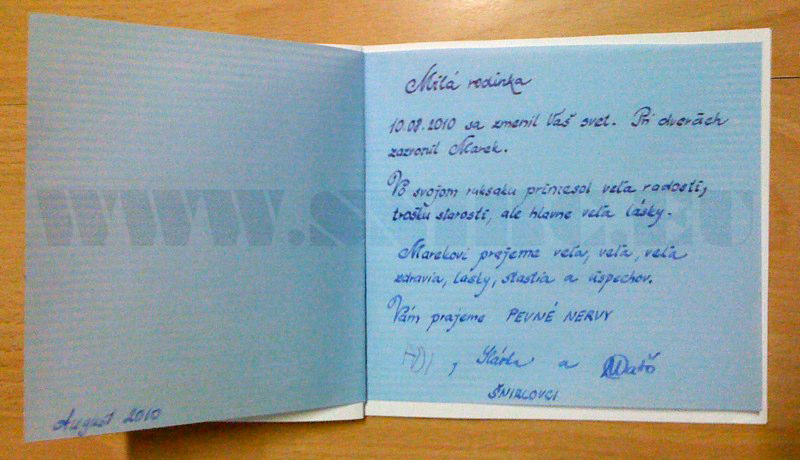 Milá rodinka
10.08.2010 sa zmenil Váš svet. Pri dverách
zazvonil Marek.
Vo svojom ruksaku priniesol veľa radosti,
trošku starostí, ale hlavne veľa lásky.
Marekovi prejeme veľa, veľa, veľa
zdravia, lásky, stastia a úspechov.
Vám prajeme PEVNÉ NERVY
, a Matúš
August 2010